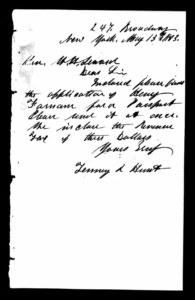 247. Broadway
New York. May 13th/63.
Dear Sir
Enclosed please find
the application of Henry
Farnam for a Passport
Please send it at once.
We inclose the Revenue
Tax of three Dollars
Yours truly